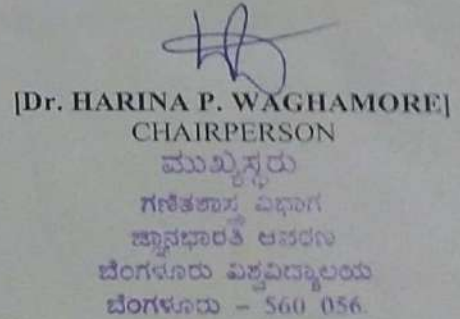 [Dr. HARINA P. WAGHAMORE]
CHAIRPERSON
ಮುಖ್ಯಸ್ಥರು
ಗಣಿತಶಾಸ್ತ್ರ ವಿಭಾಗ
ಜ್ಞಾನಭಾರತಿ ಆವರಣ
ಬೆಂಗಳೂರು ವಿಶ್ವವಿದ್ಯಾಲಯ
ಬೆಂಗಳೂರು - 560 056.